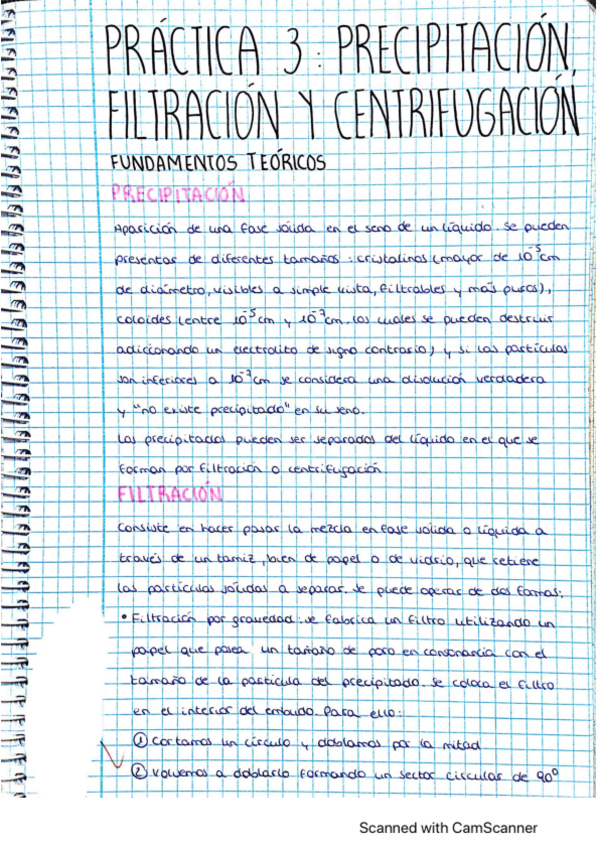 PRÁCTICA 3: PRECIPITACIÓN,
FILTRACIÓN Y CENTRIFUGACIÓN
FUNDAMENTOS TEÓRICOS
PRECIPITACIÓN
Aparición de una fase sólida en el seno de un líquido. Se pueden
presentar de diferentes tamaños: cristalinos (mayor de 10⁻⁵ cm
de diámetro, visibles a simple vista, filtrables y más puros),
coloides (entre 10⁻⁵ cm y 10⁻⁷ cm, los cuales se pueden destruir
adiccionando un electrolito de signo contrario) y si las partículas
son inferiores a 10⁻⁷ cm se considera una disolución verdadera
y "no existe precipitado" en su seno.
Los precipitados pueden ser separados del líquido en el que se
forman por filtración o centrifugación.
FILTRACIÓN
Consiste en hacer pasar la mezcla en fase sólida o líquida a
través de un tamiz, bien de papel o de vidrio, que retiere
las partículas sólidas a separar. Se puede operar de dos formas:
• Filtración por gravedad: se fabrica un filtro utilizando un
papel que posea un tamaño de poro en consonancia con el
tamaño de la partícula del precipitado. Se coloca el filtro
en el interior del embudo. Para ello:
① Cortamos un círculo y doblamos por la mitad
② Volvemos a doblarlo formando un sector circular de 90º
Scanned with CamScanner